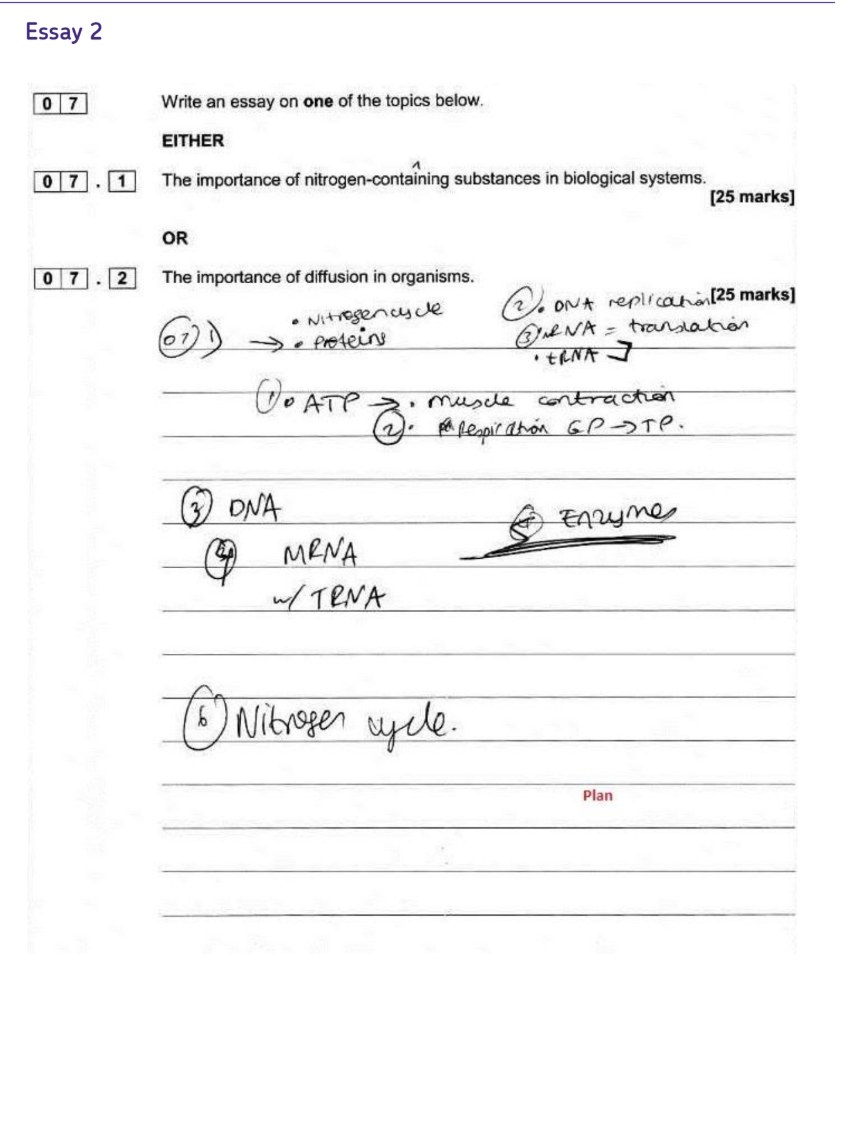 Essay 2
0 7 Write an essay on one of the topics below.
EITHER
0 7 . 1 The importance of nitrogen-containing substances in biological systems.
[25 marks]
OR
0 7 . 2 The importance of diffusion in organisms.
[25 marks]
07) 1) → • Nitrogen cycle
• Proteins
② • DNA replication
③ • mRNA = translation
• tRNA
① • ATP → • muscle contraction
② • Respiration GP → TP.
③ DNA
④ MRNA
w/ TRNA
⑤ Enzymes
⑥ Nitrogen cycle.
Plan